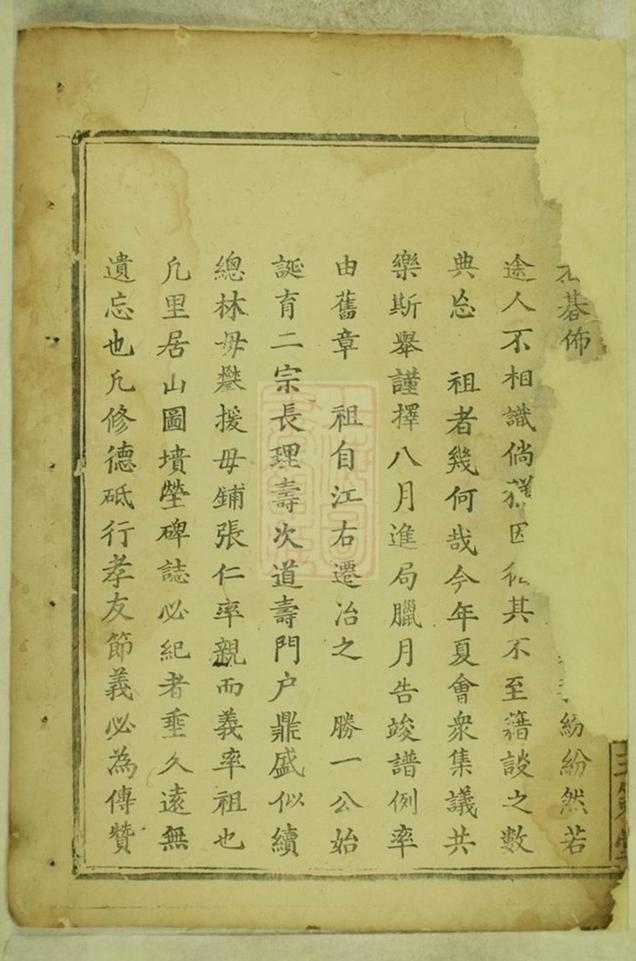 碁佈 紛紛然若
途人不相識倘 因私其不至籍談之數
典忘 祖者幾何哉今年夏會衆集議共
樂斯舉謹擇八月進局臘月告竣譜例率
由舊章 祖自江右遷冶之 勝一公始
誕育二宗長理壽次道壽門户鼎盛似續
總林毋攀援毋鋪張仁率親而義率祖也
凢里居山圖墳塋碑誌必紀者垂久遠無
遺忘也凢修德砥行孝友節義必為傳贊